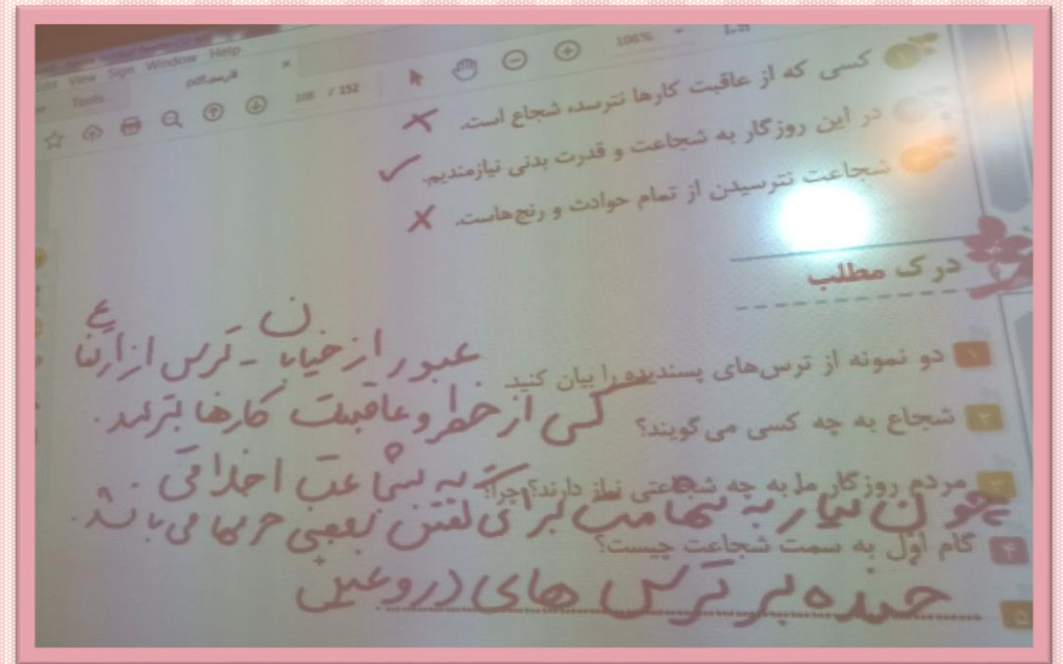 View Sign Window Help
فارسی.pdf
Tools
108 / 152
106%
کسی که از عاقبت کارها نترسد، شجاع است. ✗
در این روزگار به شجاعت و قدرت بدنی نیازمندیم. ✓
شجاعت نترسیدن از تمام حوادث و رنج‌هاست. ✗
درک مطلب
۱ دو نمونه از ترس‌های پسندیده را بیان کنید.
عبور از خیابان - ترس از ارتفاع
۲ شجاع به چه کسی می‌گویند؟
کسی از خطر و عاقبت کارها بترسد.
۳ مردم روزگار ما به چه شجاعتی نیاز دارند؟ چرا؟
به شجاعت اخلاقی
چون نیاز به شهامت برای گفتن بعضی حرفها می باشد.
۴ گام اوّل به سمت شجاعت چیست؟
خنده بر ترس های دروغین
۵